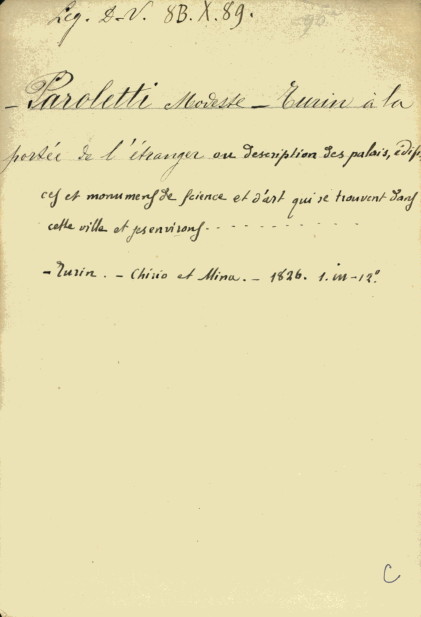 Leg. D-V. 8B. X. 89.
90.
- Paroletti Modeste - Turin à la
portée de l'étranger ou description des palais, édifi,
ces et monumens de science et d'art qui se trouvent dans
cette ville et ses environs - - - - - - - - - -
- Turin. - Chirio et Mina. - 1826. 1. in-12.°
C